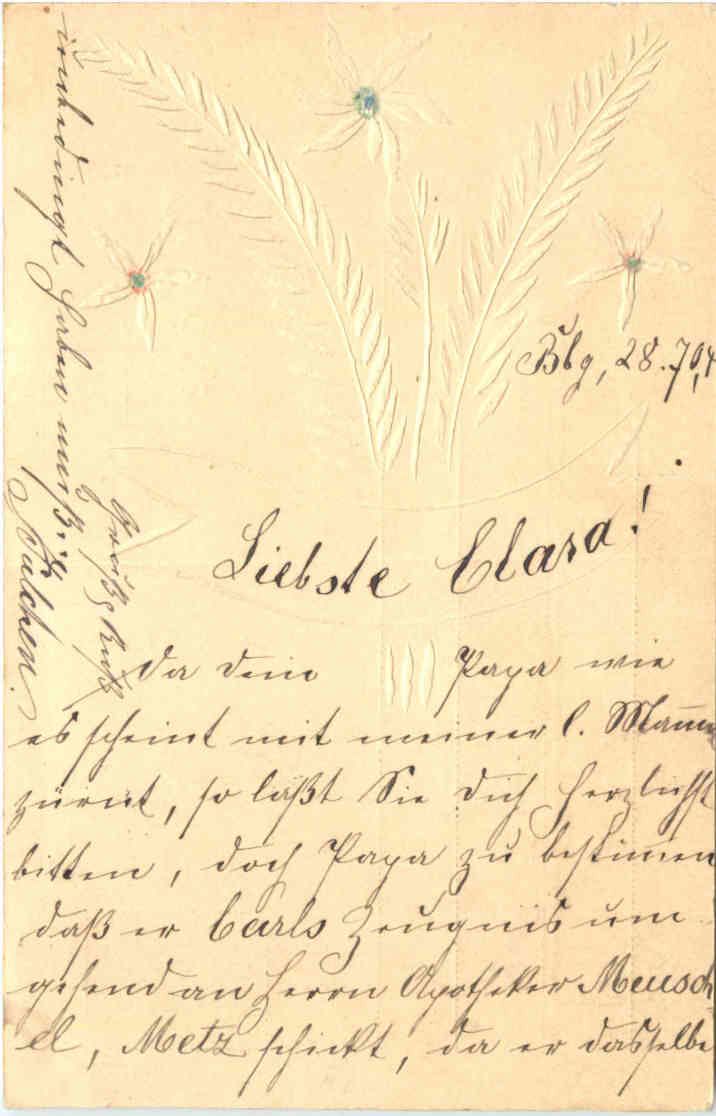 Bbg, 28.7.04
Liebste Clara!
Da dein Papa wie
es scheint mit meiner l. Mama
zürnt, so läßt Sie dich herzlichst
bitten, doch Papa zu bestimmen
daß er Carls Zeugnis um-
gehend an Herrn Apotheker Meusch-
el, Metz schickt, da er dasselbe
unbedingt haben muß.
Gruß & Kuß
Julchen